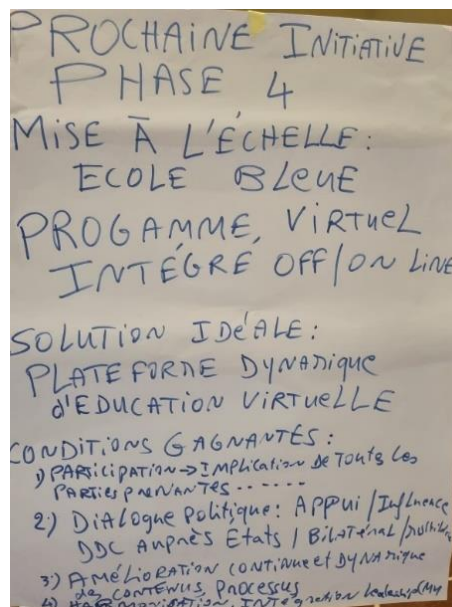 PROCHAINE INITIATIVE
PHASE 4
MISE À L'ÉCHELLE:
ECOLE BLEUE
PROGAMME, VIRTUEL
INTÉGRÉ OFF/ON LINE
SOLUTION IDÉALE:
PLATEFORME DYNAMIQUE
d'EDUCATION VIRTUELLE
CONDITIONS GAGNANTES:
1) PARTICIPATION → IMPLICATION DE TOUTS LES
PARTIES PRENANTES .......
2) DIALOGUE POLITIQUE: APPUI/Influence
DDC AUPRÈS ETATS / Bilatéral /
3) AMÉLIORATION CONTINUE et DYNAMIQUE
des CONTENUS, PROCESSUS
4) HARMONISATION, INTÉgration leadership